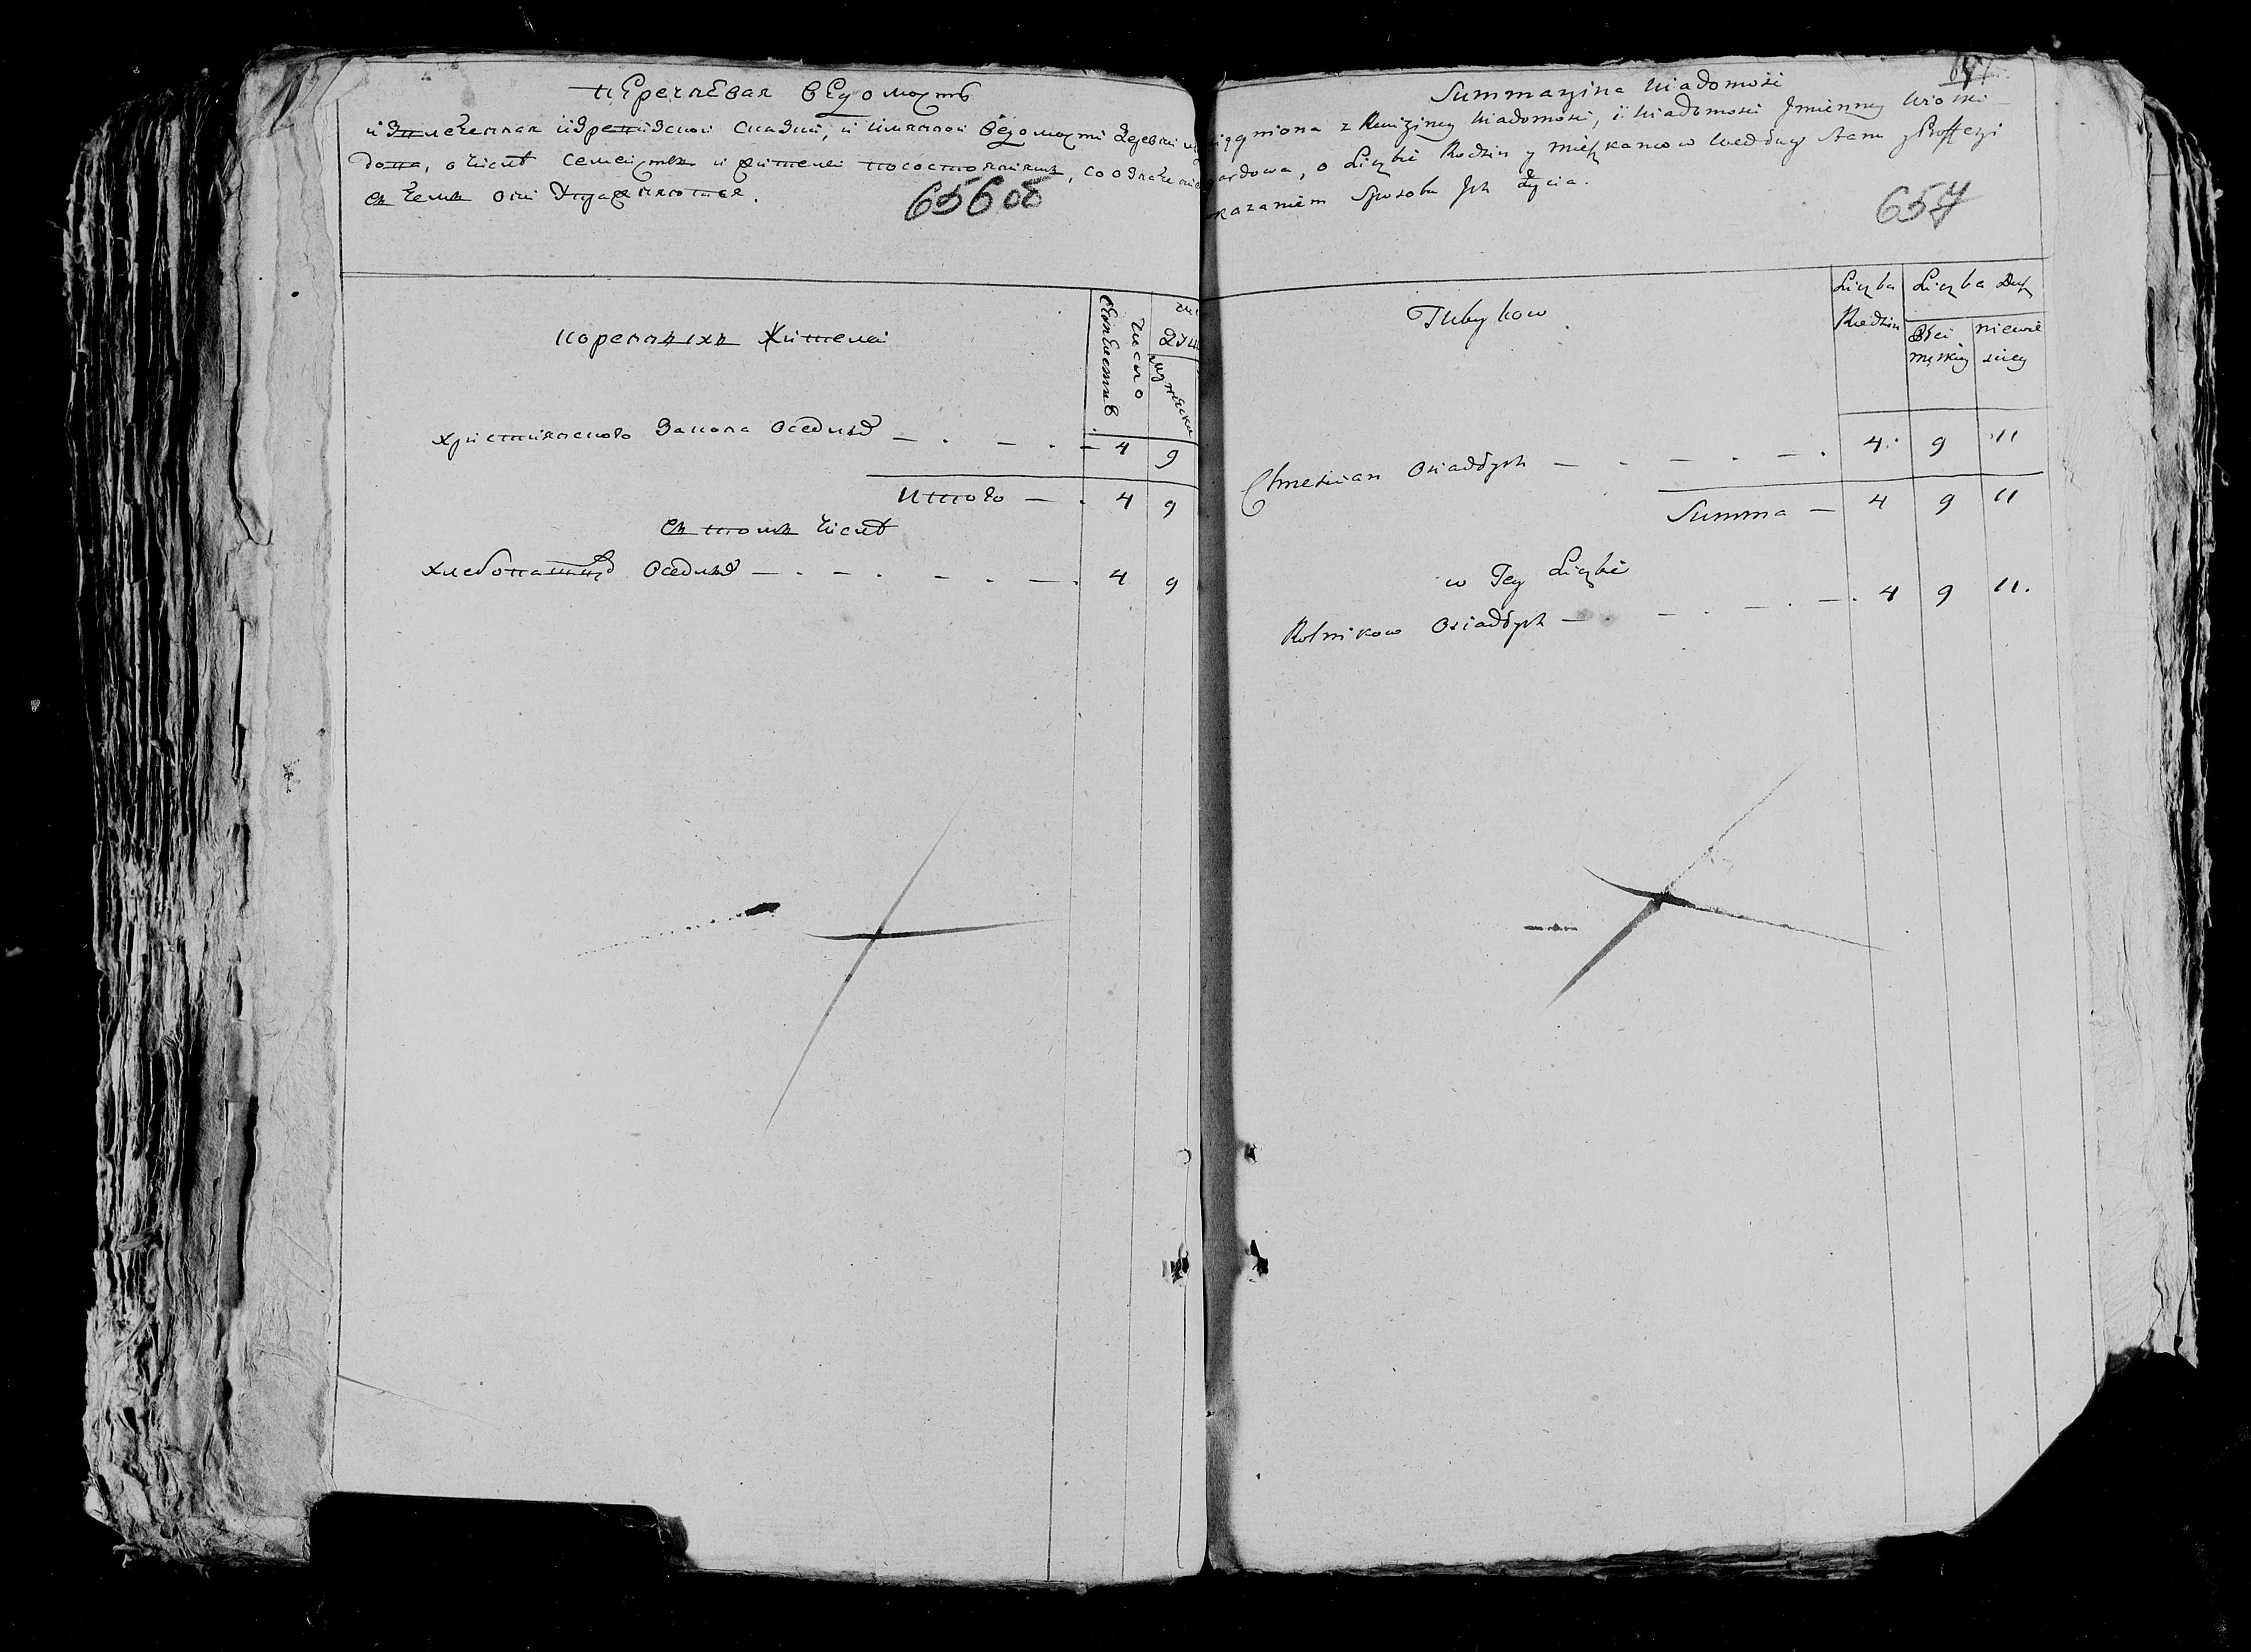 Перечневая ведомость
извлеченная изревизской сказки, и имянной ведомости деревни
дона, о числѣ семействъ и жителей посостояниямъ,
съ чемъ они упражняются.
656об
коренныхъ Жителей
число
семействъ
мужеска
християнского Закона Оседлыхъ — . — . — 4 9
Итого — . 4 9
въ томъ числѣ
хлебопашцовъ Оседлыхъ — . — . — . — . 4 9
Summaryina Wiadomość
z Rewizyiney Wiadomości, i Wiadomości Jmienney Wioski
o Liczbie Rodzin y mieszkancow według stanu y Proffessyi
kazaniem Sposobu Jch Życia.
657
Tubylcow
Liczba
Rodzin
Liczba Dusz
Płci
męskiey
niewie
sciey
Chrescian Osiadłych — . — . — . 4 9 11
Summa — 4 9 11
w Tey Liczbie
Rolnikow Osiadłych — . — . — . — . 4 9 11.